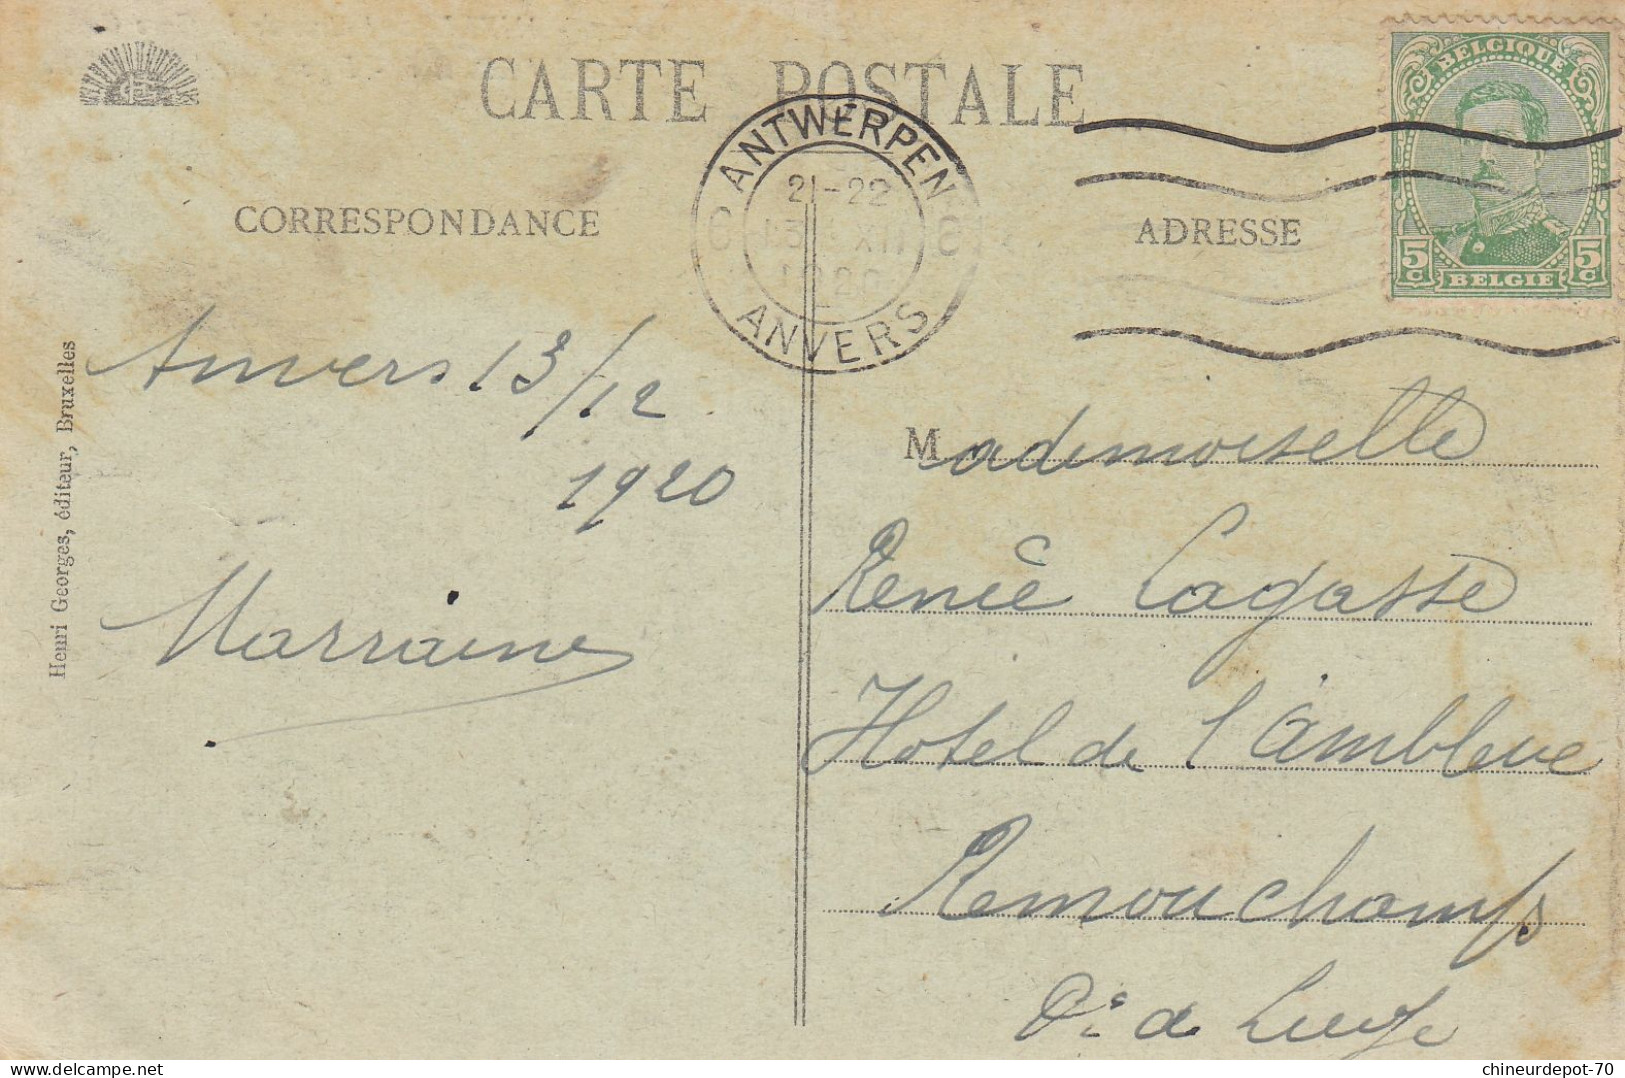 CARTE POSTALE
CORRESPONDANCE
ADRESSE
ANTWERPEN
21-22
13 XII
1920
ANVERS
BELGIQUE
5c 5c
BELGIE
Henri Georges, éditeur, Bruxelles
Anvers 13/12
1920
Marraine
Mademoiselle
Renée Lagasse
Hotel de l'Amblève
Remouchamps
de Liege
delcampe.net
chineurdepot-70